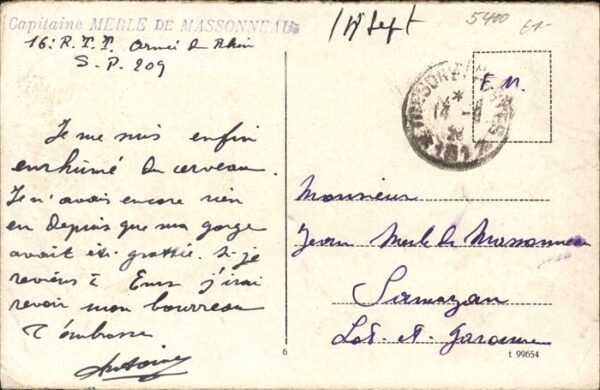 Capitaine MERLE DE MASSONNEAU
16: R. T. T. Armée du Rhin
S. P. 209
1/18 Sept
5400
F. M.
TRESOR ET POSTES
*
Je me suis enfin
enrhumé du cerveau.
Je n'avais encore rien
eu depuis que ma gorge
avait été grattée. Si je
reviens à Ems j'irai
revoir mon bourreau
T'embrasse
Antoine
Monsieur
Jean Merle de Massonneau
Samazan
Lot. et. Garonne
6
t 99654